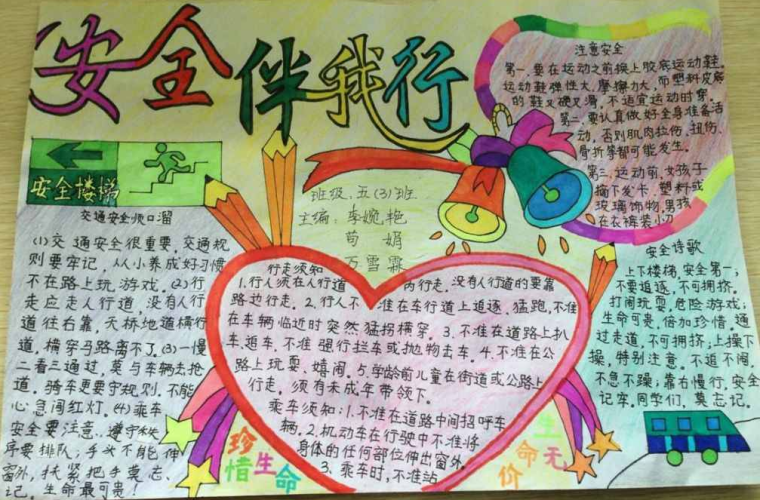 安全伴我行
安全楼梯
班级:五(3)班
主编:李婉艳
苟 娟
万雪霖
注意安全
第一、要在运动之前换上胶底运动鞋。
运动鞋弹性大,摩擦力大,而塑料皮底
的鞋又硬又滑,不适宜运动时穿。
第二、要认真做好全身准备活
动,否则肌肉拉伤、扭伤、
骨折等都可能发生。
第三、运动前,女孩子
摘下发卡、塑料或
玻璃饰物,男孩
在衣裤装小刀
交通安全顺口溜
(1)交通安全很重要,交通规
则要牢记,从小养成好习惯
不在路上玩游戏。(2)行
走应走人行道,没有人行
道往右靠,天桥地道横行
道,横穿马路离不了。(3)一慢
二看三通过,莫与车辆去抢
道。骑车更要守规则,不能
心急闯红灯。(4)乘车
安全要注意,遵守秩
序要排队,手头不能伸
窗外,扶紧把手莫忘
记,生命最可贵!
行走须知
1.行人须在人行道内行走,没有人行道的要靠
路边行走。2.行人不准在车行道上追逐、猛跑,不准
在车辆临近时突然猛拐横穿。3.不准在道路上扒
车、追车,不准强行拦车或抛物击车。4.不准在公
路上玩耍、嬉闹。5.学龄前儿童在街道或公路上
行走,须有未成年带领下。
乘车须知:1.不准在道路中间招呼车
辆。2.机动车在行驶中不准将
身体的任何部位伸出窗外。
3、乘车时,不准站
安全诗歌
上下楼梯,安全第一;
不要追逐,不可拥挤。
打闹玩耍,危险游戏;
生命可贵,倍加珍惜。通
过走道,不可拥挤;上操下
操,特别注意。不追不闹,
不急不躁;靠右慢行,安全
记牢。同学们,莫忘记。
珍惜生命
生命无价